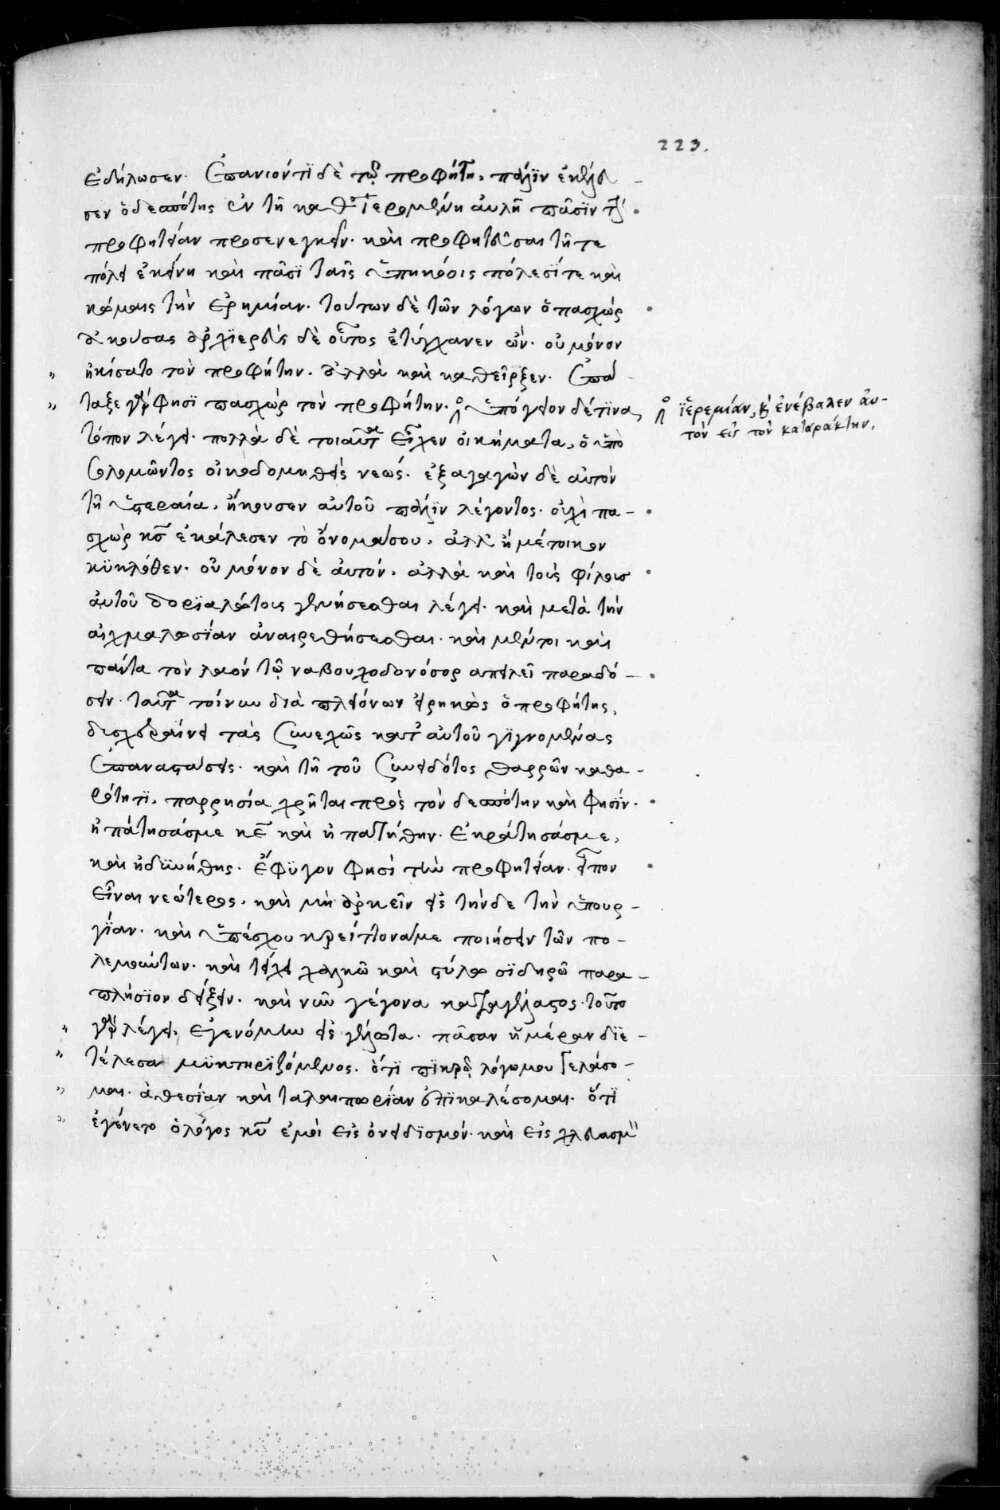 223.
ἐδήλωσεν. Ἐπανιόντι δὲ τῷ προφήτῃ, πάλιν ἐκέλευ-
σεν ὁ δεσπότης ἐν τῇ καθ' ἱερωμένῃ αὐλῇ πᾶσιν τὴν
προφητείαν προσενεγκεῖν. καὶ προφητεῦσαι τῇ τε
πόλει ἐκείνῃ καὶ πᾶσι ταῖς ὑπηκόοις πόλεσί τε καὶ
κώμαις τὴν ἐρημίαν. τούτων δὲ τῶν λόγων ὁ πασχὼρ
ἀκούσας ἀρχιερεὺς δὲ οὗτος ἐτύγχανεν ὤν. οὐ μόνον
ᾐκίσατο τὸν προφήτην. ἀλλὰ καὶ καθεῖρξεν. Ἐπά-
ταξε γὰρ φησὶ πασχὼρ τὸν προφήτην. ὑπόγειον δέ τινα
ἱερεμίαν, καὶ ἐνέβαλεν αὐ-
τὸν εἰς τὸν καταράκτην.
τόπον λέγει. πολλὰ δὲ τοιαῦτα εἶχεν οἰκήματα, ὁ ὑπὸ
Σολομῶντος οἰκοδομηθεὶς νεώς. ἐξαγαγὼν δὲ αὐτὸν
τῇ ὑστεραία, ἤκουσεν αὐτοῦ πάλιν λέγοντος. οὐχὶ πα-
σχὼρ κς ἐκάλεσεν τὸ ὄνομά σου, ἀλλ' ἢ μέτοικον
κυκλόθεν. οὐ μόνον δὲ αὐτόν. ἀλλὰ καὶ τοὺς φίλους
αὐτοῦ δοριαλώτους γενήσεσθαι λέγει. καὶ μετὰ τὴν
αἰχμαλωσίαν ἀναιρεθήσεσθαι. καὶ μέντοι καὶ
πάντα τὸν λαόν τῷ ναβουχοδονόσορ ἀπειλεῖ παραδώ-
σειν. ταῦτα τοίνυν διὰ πλειόνων εἰρηκὼς ὁ προφήτης,
δυσχεραίνει τὰς συνεχῶς κατ' αὐτοῦ γιγνομένας
ἐπαναστάσεις. καὶ τῇ τοῦ συνειδότος θαρρῶν καθα-
ρότητι, παρρησία χρῆται πρὸς τὸν δεσπότην καὶ φησίν.
ἠπάτησάς με κε καὶ ἠπατήθην. ἐκράτησάς με,
καὶ ἠδυνήθης. ἔφυγον φησὶ τὴν προφητείαν. εἰπὼν
εἶναι νεώτερος. καὶ μὴ ἀρκεῖν εἰς τήνδε τὴν ὑπουρ-
γίαν. καὶ ὑπέσχου κρείττονά με ποιήσειν τῶν πο-
λεμούντων. καὶ τείχει χαλκῷ καὶ στύλω σιδηρῷ παρα-
πλήσιον δείξειν. καὶ νῦν γέγονα καταγέλαστος. τοῦτο
γὰρ λέγει, ἐγενόμην εἰς γέλωτα. πᾶσαν ἡμέραν διε-
τέλεσα μυκτηριζόμενος. ὅτι πικρῷ λόγω μου γελάσο-
μαι. ἀθεσίαν καὶ ταλαιπωρίαν ἐπικαλέσομαι. ὅτι
ἐγένετο ὁ λόγος κυ ἐμοὶ εἰς ὀνειδισμόν. καὶ εἰς χλευασμὸν